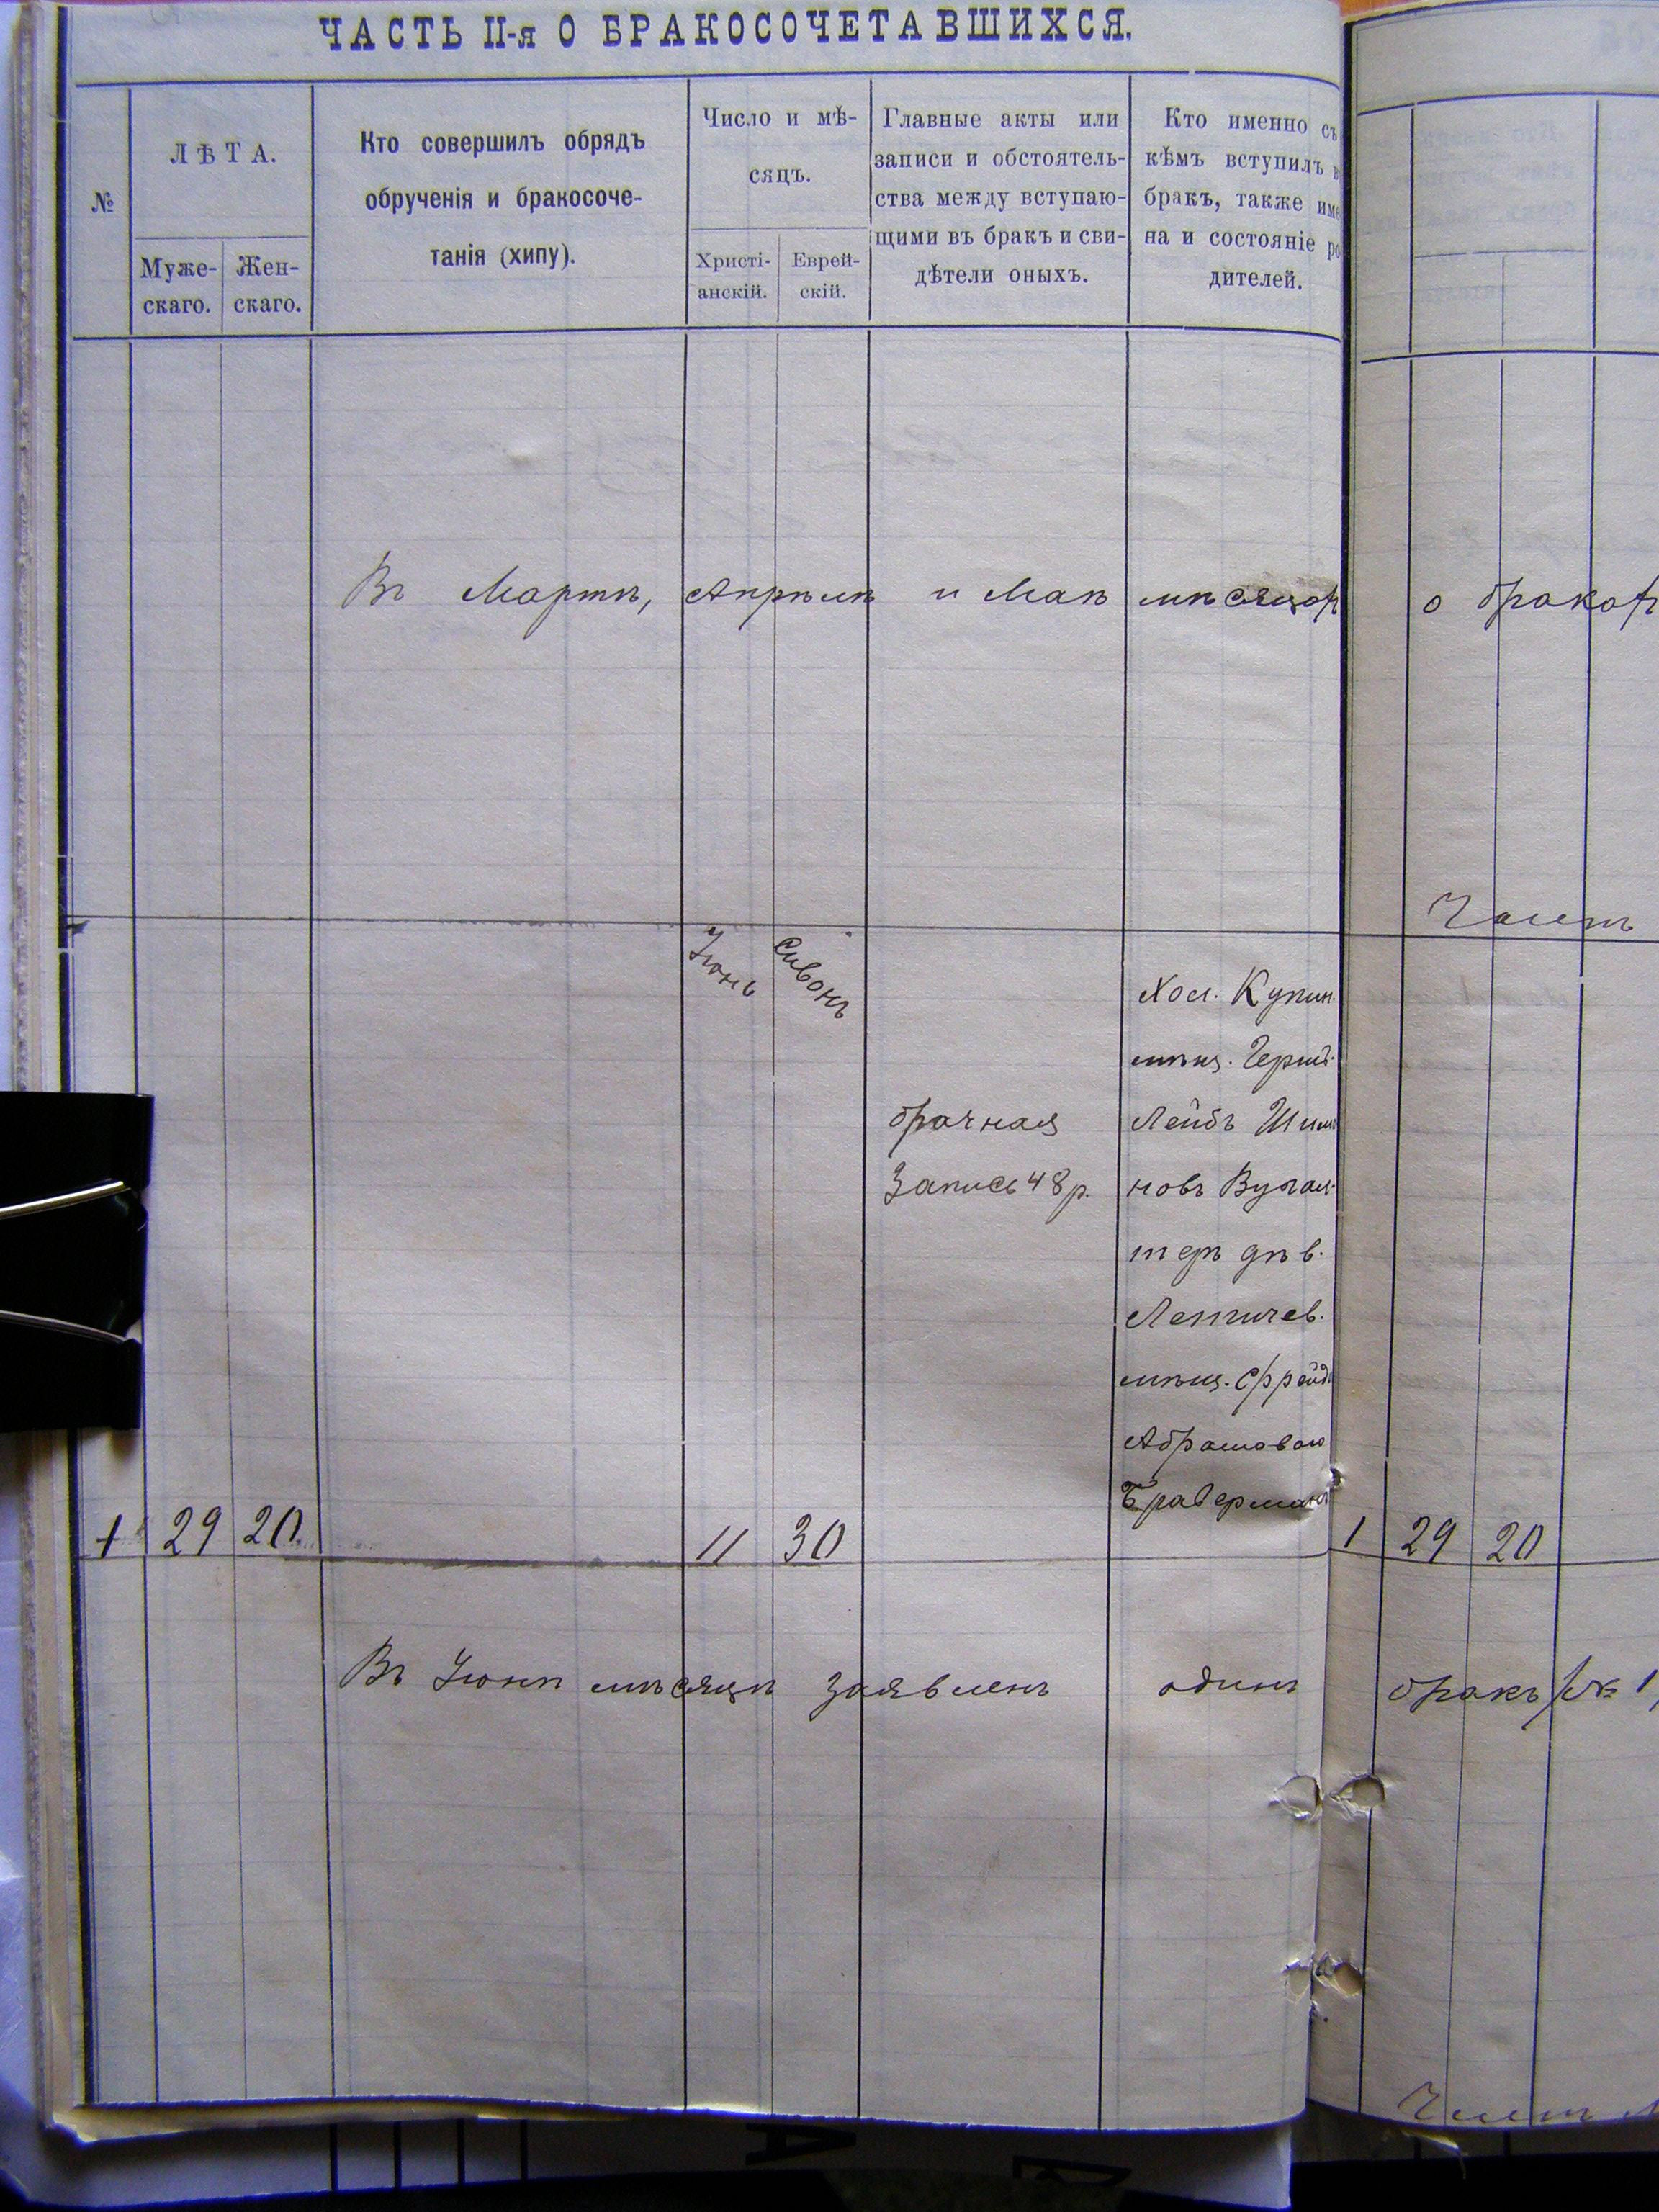 ЧАСТЬ II-я О БРАКОСОЧЕТАВШИХСЯ.
№
ЛѢТА.
Муже-
скаго.
Жен-
скаго.
Кто совершилъ обрядъ
обрученія и бракосоче-
танія (хипу).
Число и мѣ-
сяцъ.
Христі-
анскій.
Еврей-
скій.
Главные акты или
записи и обстоятель-
ства между вступаю-
щими въ бракъ и сви-
дѣтели оныхъ.
Кто именно съ
кѣмъ вступилъ в
бракъ, также име
на и состояніе ро
дителей.
Въ Мартѣ, Апрѣлѣ и Маѣ мѣсяцах о браках
Іюнь
Сивонъ
брачная
Запись 48 р.
Хол. Купин.
мѣщ.
Лейбъ Шим
новъ
теръ дѣв.
Летичев.
мѣщ. Фрейд
Абрамовою
Браверманъ
1 29 20 11 30
1 29 20
Въ Іюнѣ мѣсяцѣ заявленъ одинъ бракъ /№ 1/